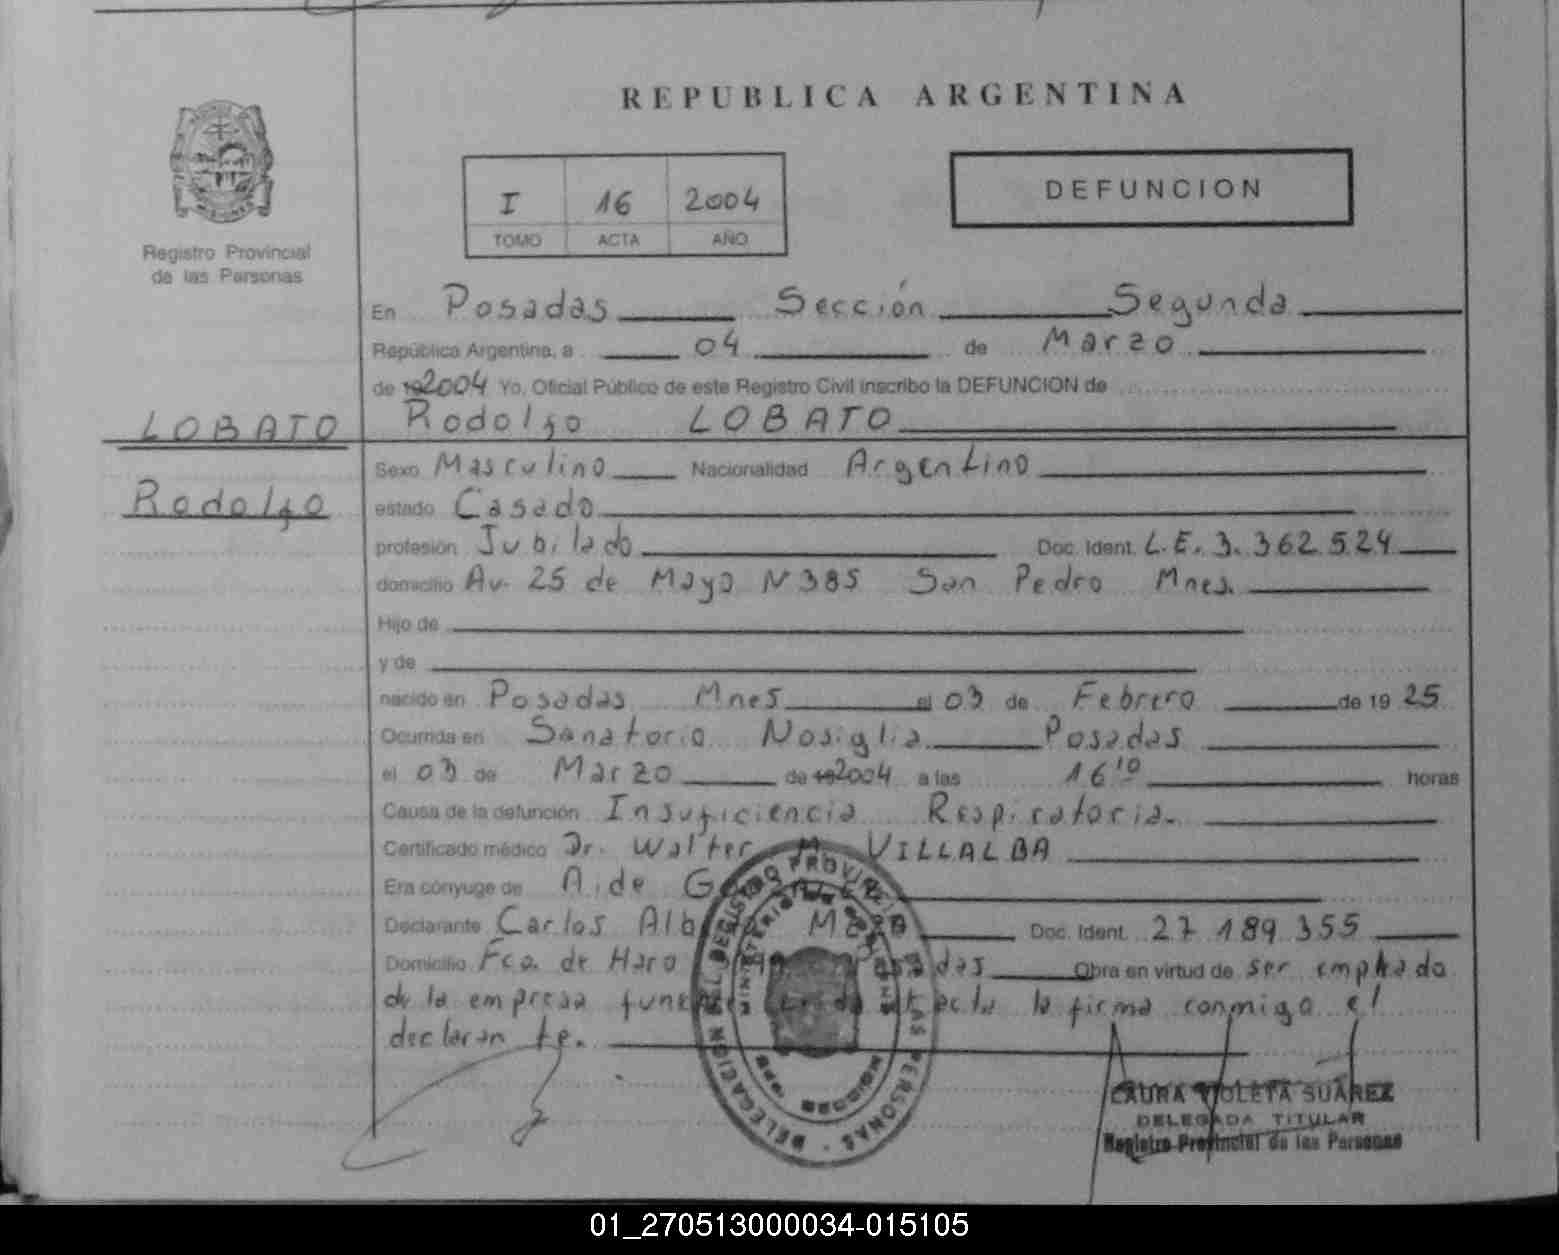 REPUBLICA ARGENTINA
I 16 2004
TOMO ACTA AÑO
DEFUNCION
Registro Provincial
de las Personas
En Posadas Sección Segunda
República Argentina, a 04 de Marzo
de 192004 Yo, Oficial Público de este Registro Civil inscribo la DEFUNCION de
LOBATO
Rodolfo LOBATO
Rodolfo
Sexo Masculino Nacionalidad Argentino
estado Casado
profesión Jubilado Doc. Ident. L.E. 3.362.524
domicilio Av. 25 de Mayo N 385 San Pedro Mnes.
Hijo de
y de
nacido en Posadas Mnes el 03 de Febrero de 19 25
Ocurrida en Sanatorio Nosiglia Posadas
el 03 de Marzo de 192004 a las 16¹⁰ horas
Causa de la defunción Insuficiencia Respiratoria.
Certificado médico Dr. Walter M. VILLALBA
Era cónyuge de Aide
Declarante Carlos Doc. Ident. 27.189.355
Domicilio Fco. de Haro Obra en virtud de ser empleado
de la empresa la firma conmigo el
declarante.
DELEGACION DEL REGISTRO PROVINCIAL DE LAS PERSONAS
MINISTERIO DE GOBIERNO
MISIONES
LAURA VIOLETA SUAREZ
DELEGADA TITULAR
Registro Provincial de las Personas
01_270513000034-015105